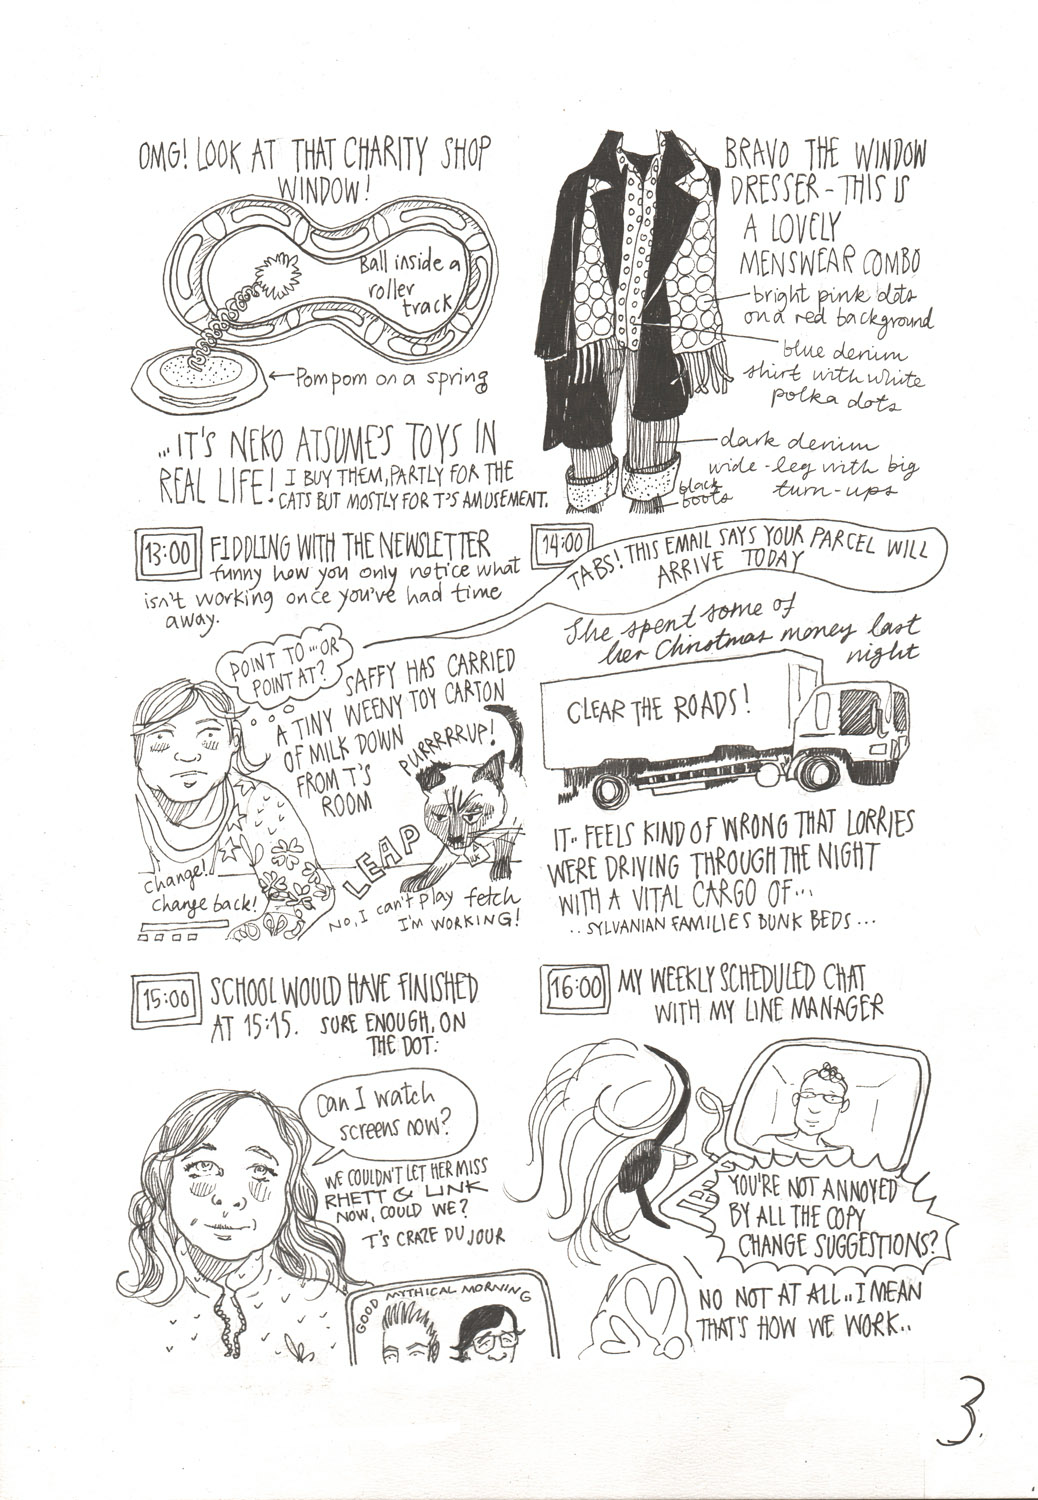 OMG! LOOK AT THAT CHARITY SHOP
WINDOW!
Ball inside a
roller
track
←Pompom on a spring
...IT'S NEKO ATSUME'S TOYS IN
REAL LIFE! I BUY THEM, PARTLY FOR THE
CATS BUT MOSTLY FOR T'S AMUSEMENT.
BRAVO THE WINDOW
DRESSER - THIS IS
A LOVELY
MENSWEAR COMBO
bright pink dots
on a red background
blue denim
shirt with white
polka dots
dark denim
wide-leg with big
turn-ups
black
boots
13:00 FIDDLING WITH THE NEWSLETTER
funny how you only notice what
isn't working once you've had time
away.
POINT TO...OR
POINT AT?
SAFFY HAS CARRIED
A TINY WEENY TOY CARTON
OF MILK DOWN
FROM T'S
ROOM
PURRRRRUP!
LEAP
change!
change back!
NO, I can't play fetch
I'M WORKING!
14:00
TABS! THIS EMAIL SAYS YOUR PARCEL WILL
ARRIVE TODAY
She spent some of
her Christmas money last
night
CLEAR THE ROADS!
IT.. FEELS KIND OF WRONG THAT LORRIES
WERE DRIVING THROUGH THE NIGHT
WITH A VITAL CARGO OF...
..SYLVANIAN FAMILIES BUNK BEDS...
15:00 SCHOOL WOULD HAVE FINISHED
AT 15:15. SURE ENOUGH, ON
THE DOT:
Can I watch
screens now?
WE COULDN'T LET HER MISS
RHETT & LINK
NOW, COULD WE?
T'S CRAZE DU JOUR
GOOD MYTHICAL MORNING
16:00 MY WEEKLY SCHEDULED CHAT
WITH MY LINE MANAGER
YOU'RE NOT ANNOYED
BY ALL THE COPY
CHANGE SUGGESTIONS?
NO NOT AT ALL.. I MEAN
THAT'S HOW WE WORK..
3.